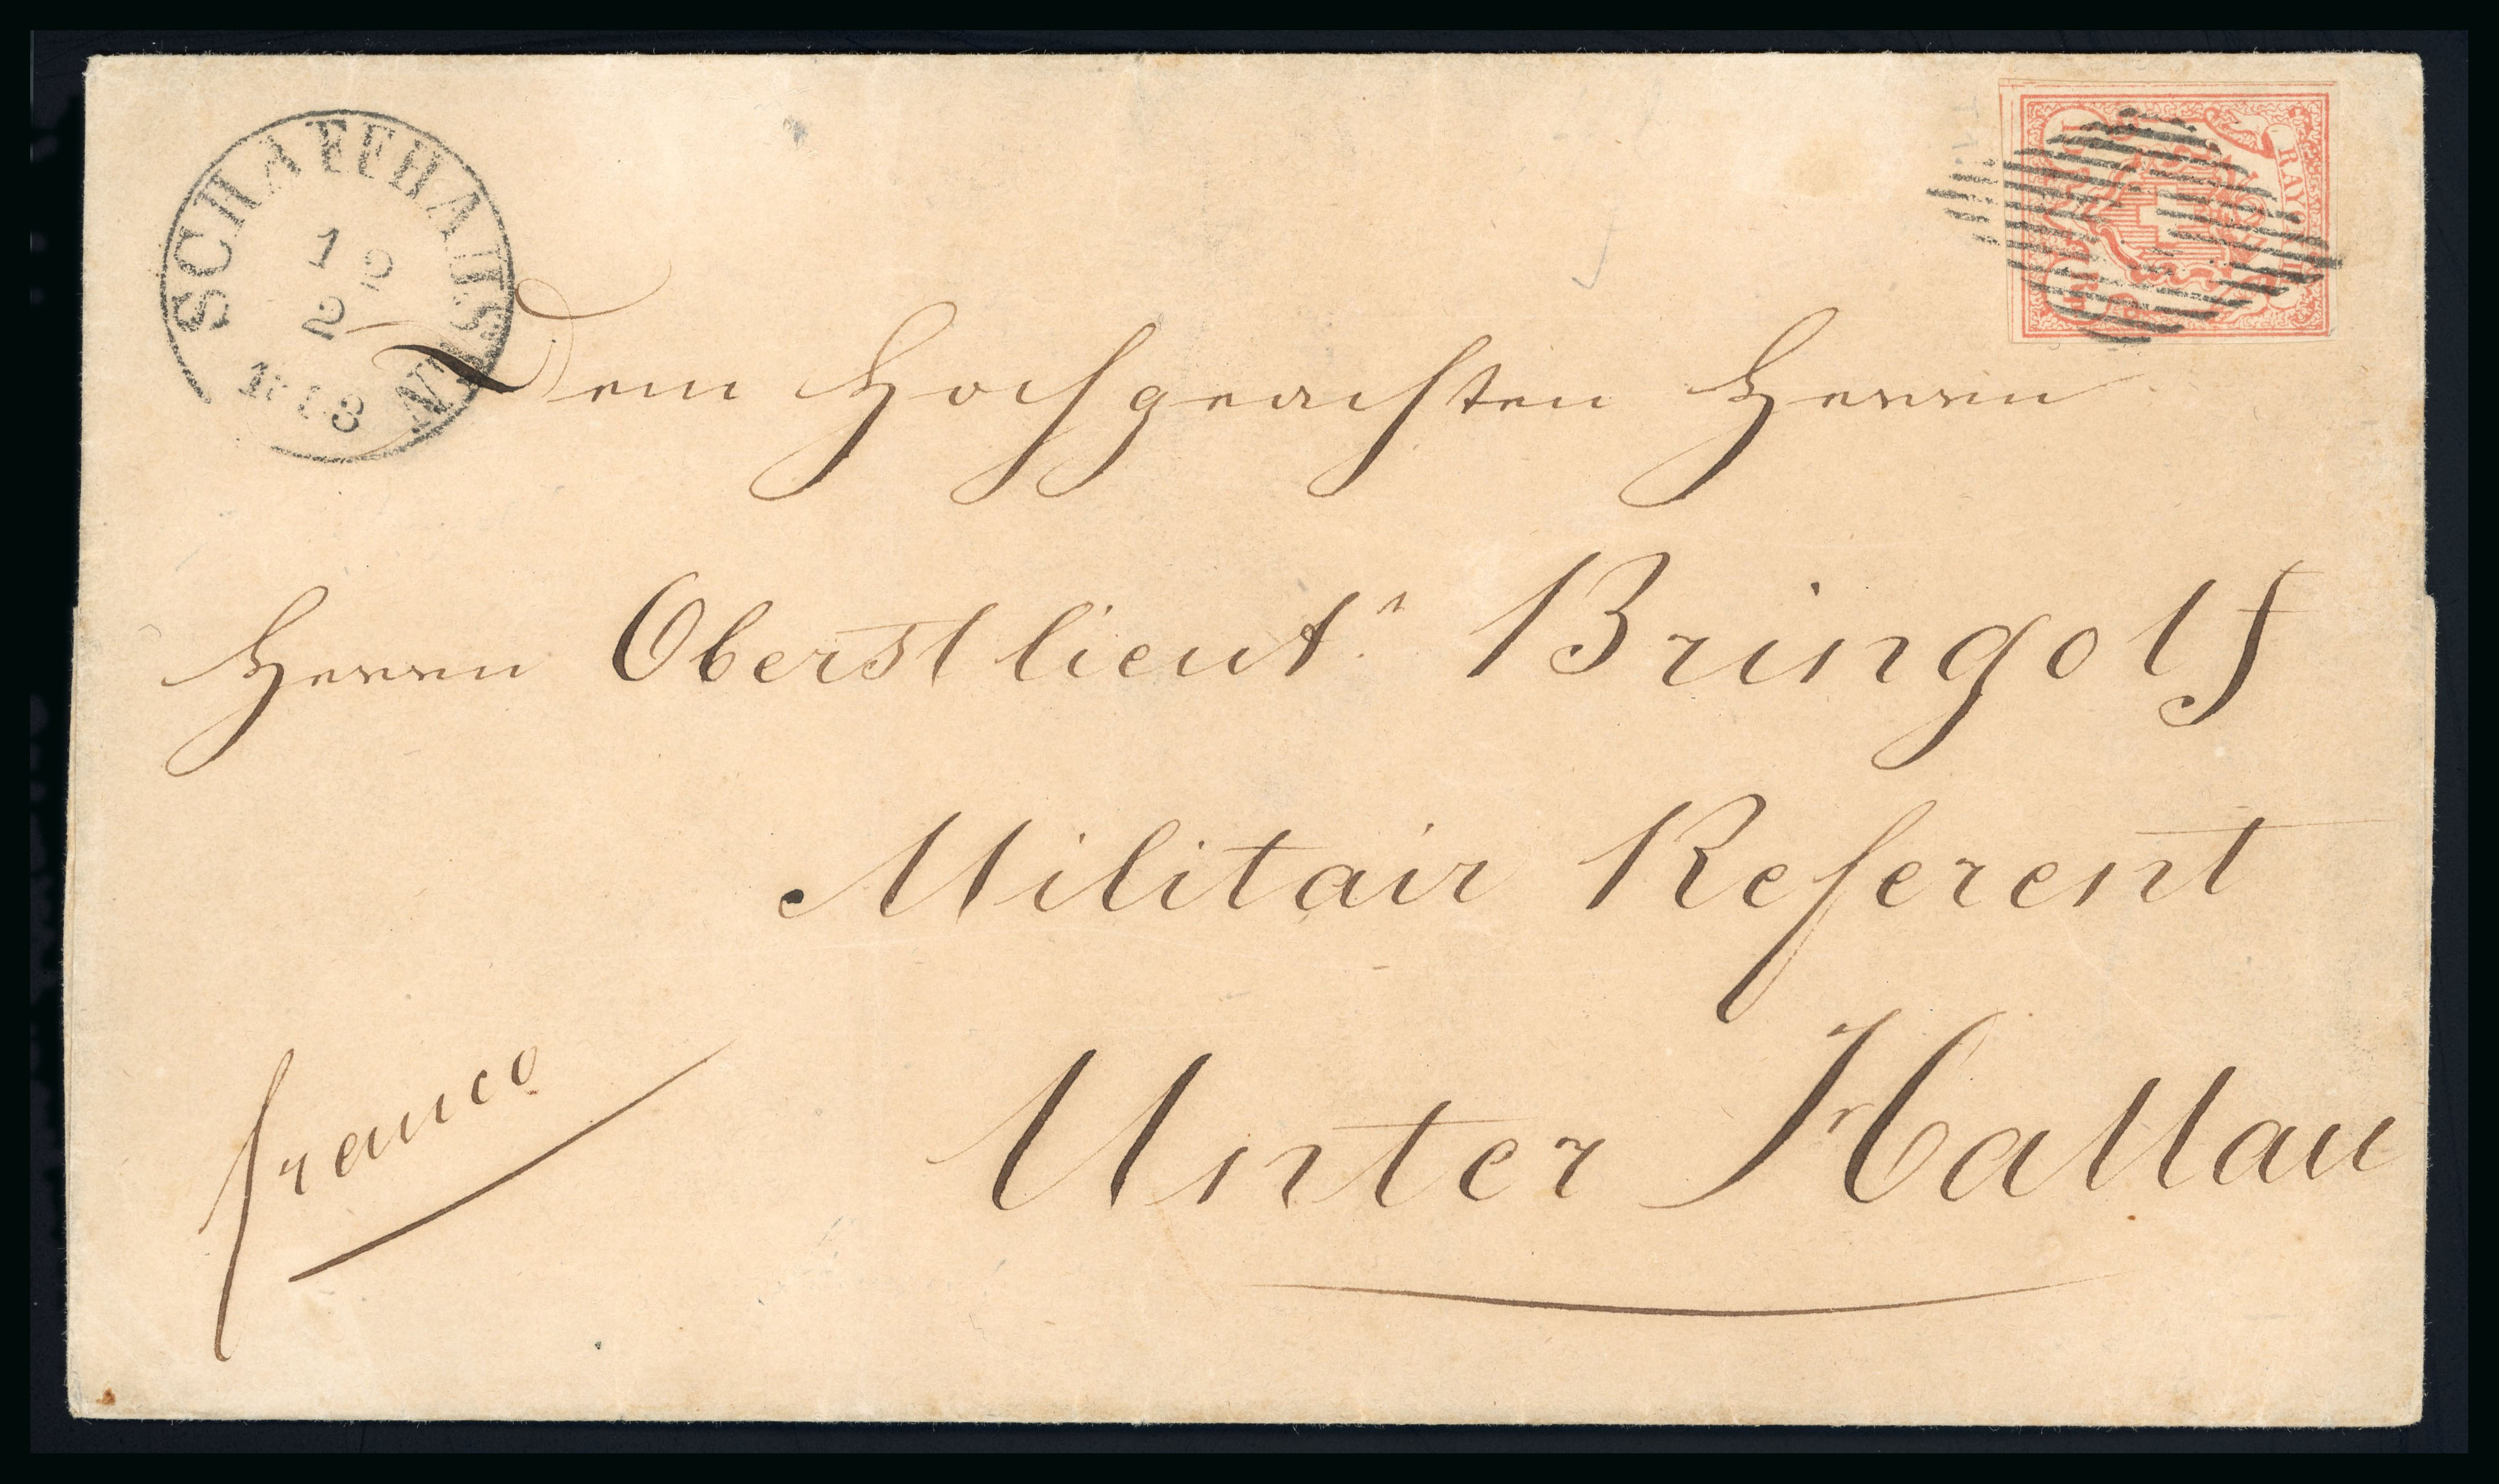 SCHAFFHAUSEN
12
2
RAYON
Dem Hochgeachten Herrn
Herrn Oberstlieut.n Bringolf
Militair Referent
franco
Unter Hallau